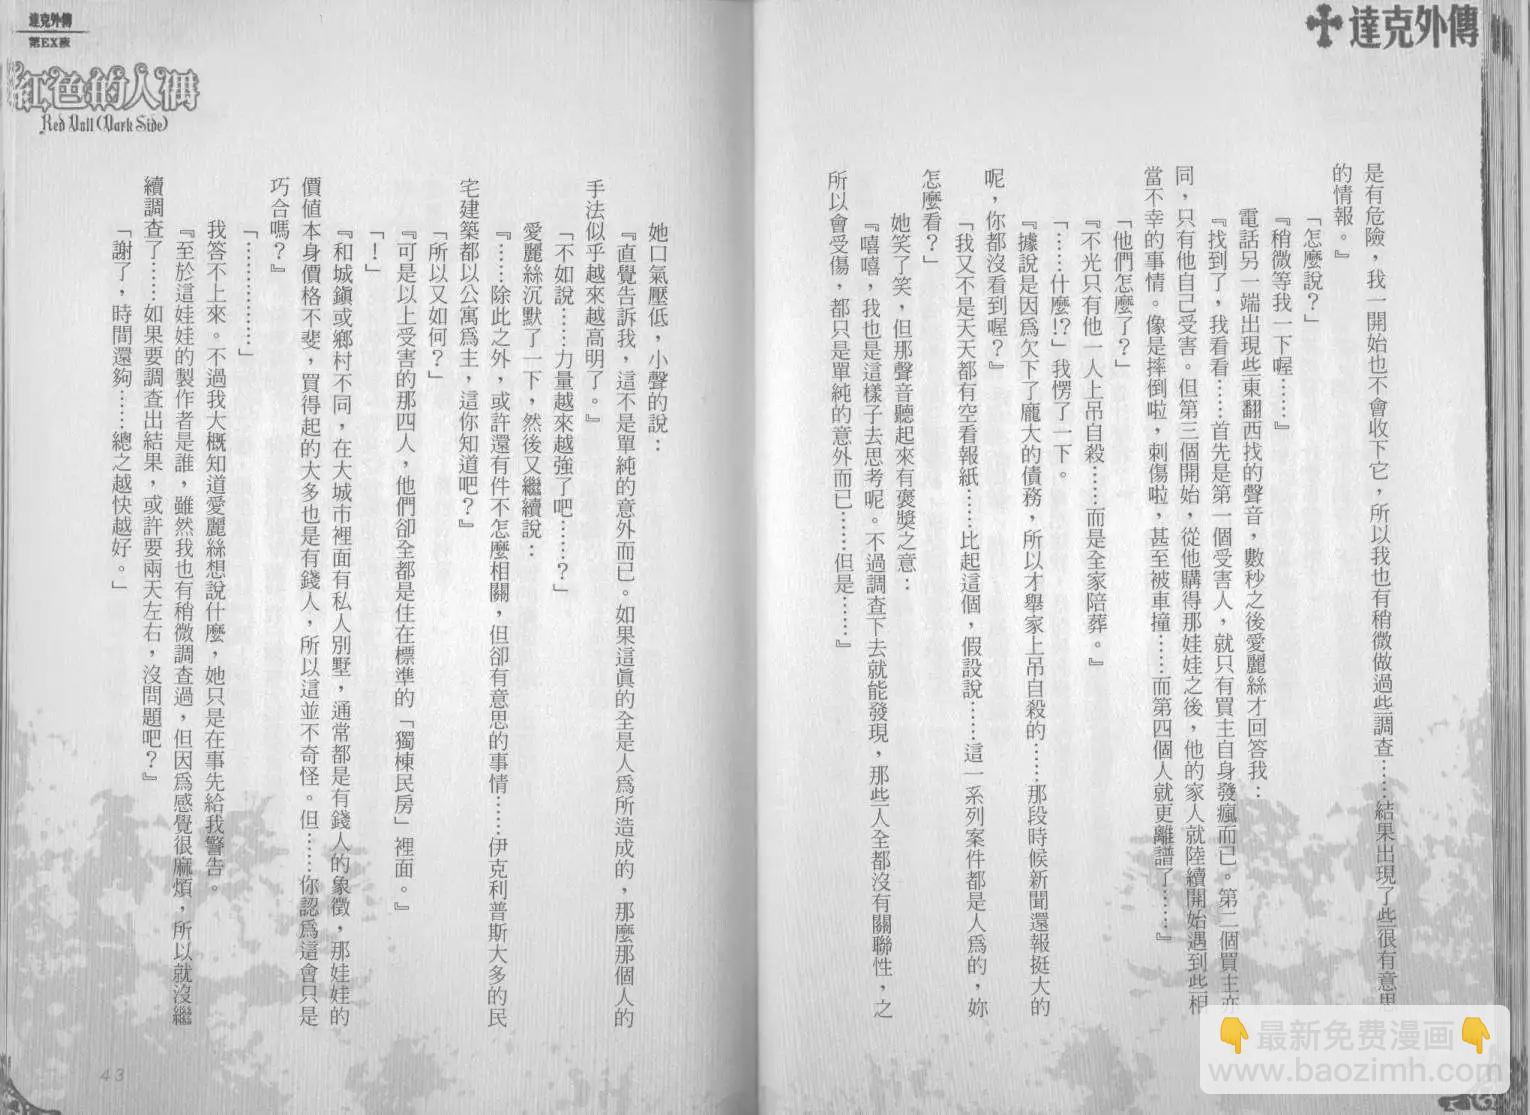 達克外傳
是有危險，我一開始也不會收下它，所以我也有稍微做過些調查……結果出現了些很有意思
的情報。』
「怎麼說？」
『稍微等我一下喔……』
電話另一端出現些東翻西找的聲音，數秒之後愛麗絲才回答我：
『找到了，我看看……首先是第一個受害人，就只有買主自身發瘋而已。第二個買主亦
同，只有他自己受害。但第三個開始，從他購得那娃娃之後，他的家人就陸續開始遇到些相
當不幸的事情。像是摔倒啦，刺傷啦，甚至被車撞……而第四個人就更離譜了……』
「他們怎麼了？」
『不光只有他一人上吊自殺……而是全家陪葬。』
「……什麼!?」我愣了一下。
『據說是因為欠下了龐大的債務，所以才舉家上吊自殺的……那段時候新聞還報挺大的
呢，你都沒看到喔？』
「我又不是天天都有空看報紙……比起這個，假設說……這一系列案件都是人為的，妳
怎麼看？」
她笑了笑，但那聲音聽起來有褒獎之意：
『嘻嘻，我也是這樣子去思考呢。不過調查下去就能發現，那些人全都沒有關聯性，之
所以會受傷，都只是單純的意外而已……但是……』
她口氣壓低，小聲的說：
『直覺告訴我，這不是單純的意外而已。如果這真的全是人為所造成的，那麼那個人的
手法似乎越來越高明了。』
「不如說……力量越來越強了吧……？」
愛麗絲沉默了一下，然後又繼續說：
『……除此之外，或許還有件不怎麼相關，但卻有意思的事情……伊克利普斯大多的民
宅建築都以公寓為主，這你知道吧？』
「所以又如何？」
『可是以上受害的那四人，他們卻全都是住在標準的「獨棟民房」裡面。』
「！」
『和城鎮或鄉村不同，在大城市裡面有私人別墅，通常都是有錢人的象徵，那娃娃的
價值本身價格不斐，買得起的大多也是有錢人，所以這並不奇怪。但……你認為這會只是
巧合嗎？』
「……………」
我答不上來。不過我大概知道愛麗絲想說什麼，她只是在事先給我警告。
『至於這娃娃的製作者是誰，雖然我也有稍微調查過，但因為感覺很麻煩，所以就沒繼
續調查了……如果要調查出結果，或許要兩天左右，沒問題吧？』
「謝了，時間還夠……總之越快越好。」
達克外傳
第EX夜
紅色的人偶
Red Doll (Dark Side)
43
👇最新免费漫画👇
www.baozimh.com